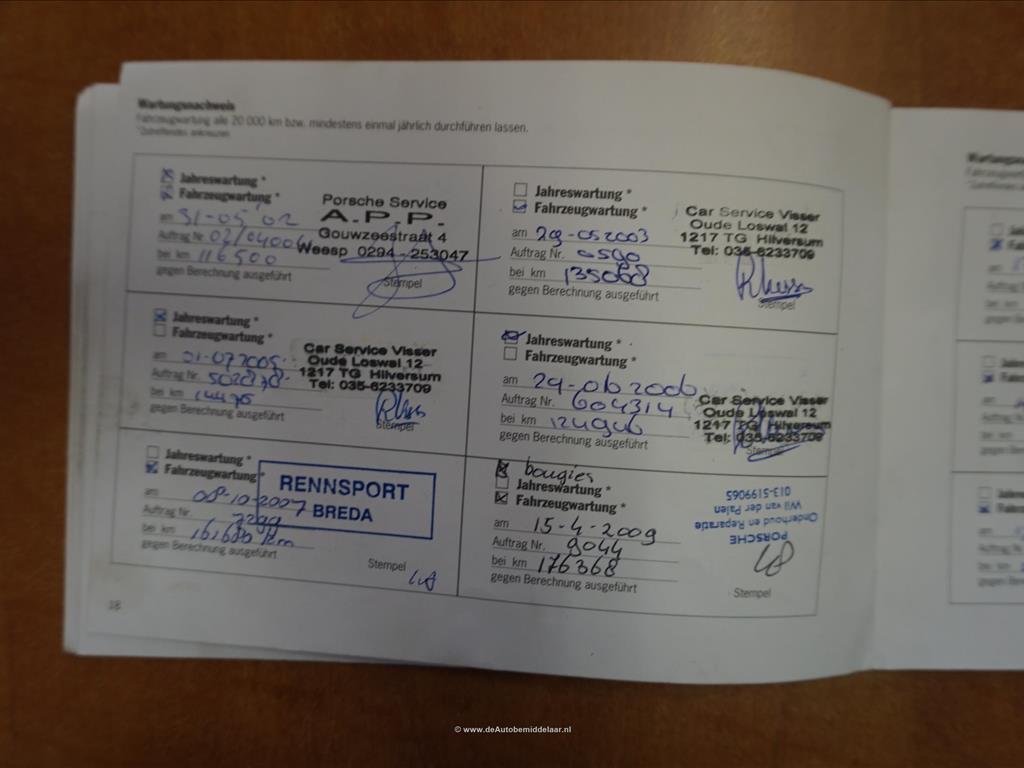 Wartungsnachweis
Fahrzeugwartung alle 20 000 km bzw. mindestens einmal jährlich durchführen lassen.
*Zutreffendes ankreuzen
Jahreswartung *
Fahrzeugwartung *
am 31-05'02
Auftrag Nr.
bei km 116500
gegen Berechnung ausgeführt
Porsche Service
A.P.P.
Gouwzeestraat 4
Weesp 0294-253047
Stempel
Jahreswartung *
Fahrzeugwartung *
am 29-052003
Auftrag Nr. 0590
bei km 135068
gegen Berechnung ausgeführt
Car Service Visser
Oude Loswal 12
1217 TG Hilversum
Tel: 035-6233709
Stempel
Jahreswartung *
Fahrzeugwartung *
am 01-072005
Auftrag Nr.
bei km
gegen Berechnung ausgeführt
Car Service Visser
Oude Loswal 12
1217 TG Hilversum
Tel: 035-6233709
Stempel
Jahreswartung *
Fahrzeugwartung *
am 29-062006
Auftrag Nr. 604314
bei km
gegen Berechnung ausgeführt
Car Service Visser
Oude Loswal 12
1217 TG Hilversum
Tel: 035-6233709
Stempel
Jahreswartung *
Fahrzeugwartung *
am 08-10-2007
Auftrag Nr. 7299
bei km
gegen Berechnung ausgeführt
RENNSPORT
BREDA
Stempel
bougies
Jahreswartung *
Fahrzeugwartung *
am 15-4-2009
Auftrag Nr. 9044
bei km 176368
gegen Berechnung ausgeführt
PORSCHE
Onderhoud en Reparatie
Wil van der Palen
013-5199065
Stempel
18
© www.deAutobemiddelaar.nl